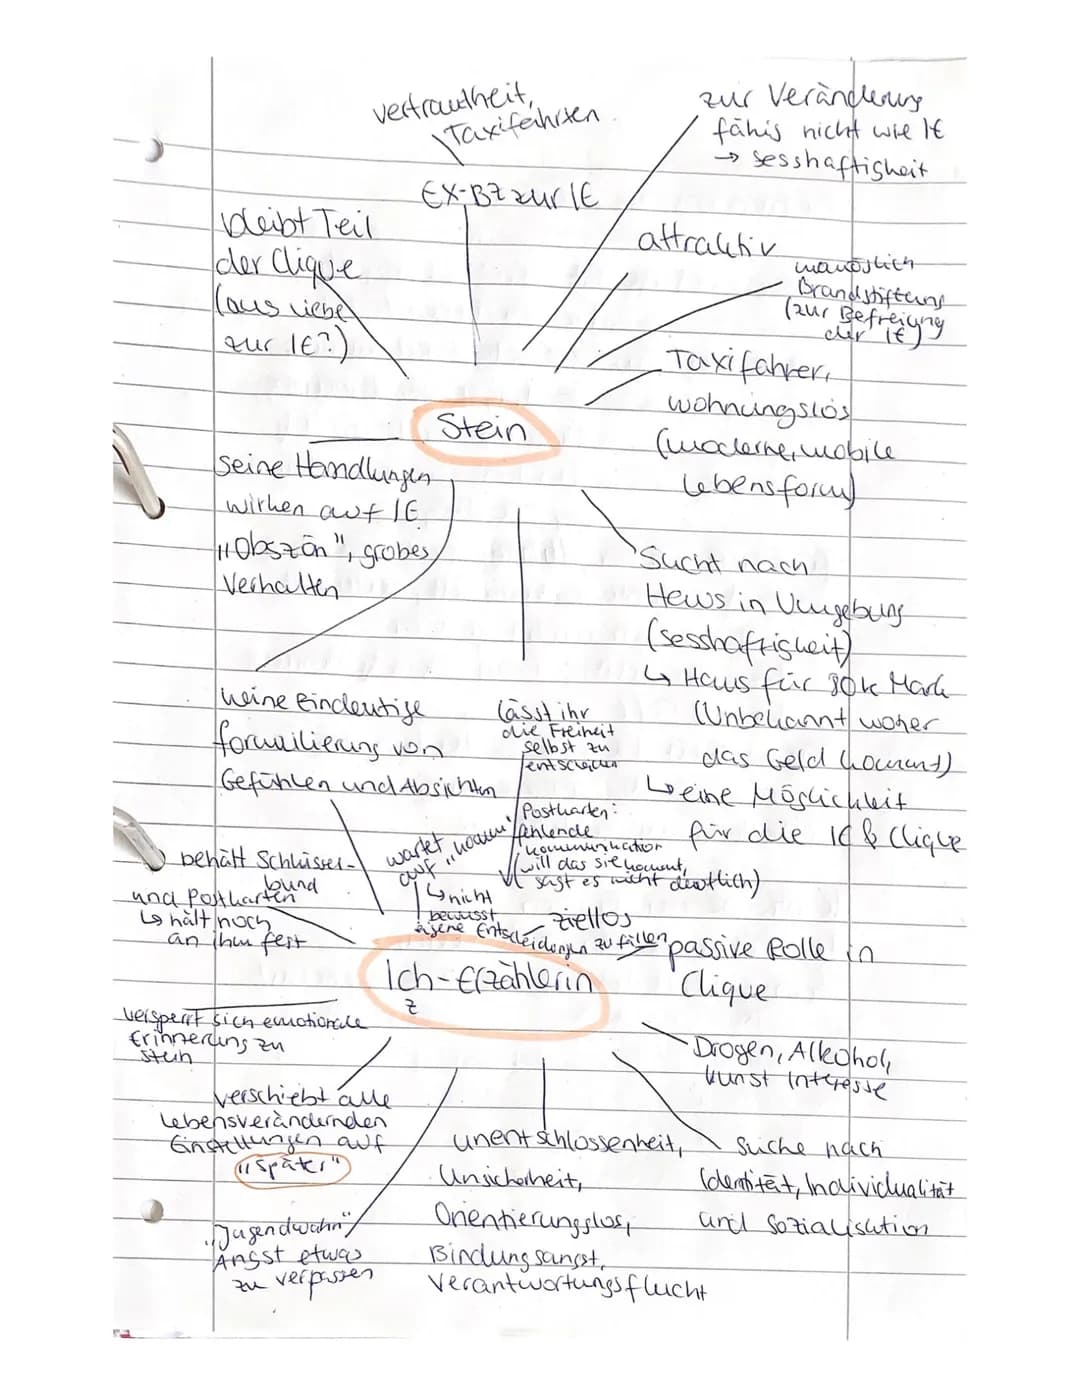 Vertrautheit,
Taxifahrten
zur Veränderung
fähig nicht wie IE
→ Sesshaftigkeit
EX-BZ zur IE
bleibt Teil
der Clique
(aus Liebe
zur IE?)
attraktiv
Brandstiftung
(zur Befreiung
der IE)
Taxifahrer,
wohnungslos
(moderne, mobile
Lebensform)
Stein
seine Handlungen
wirken auf IE
„Obszön", grobes
Verhalten
Sucht nach
Haus in Umgebung
(sesshaftigkeit)
↳ Haus für 80k Mark
(Unbekannt woher
das Geld kommt)
↳ eine Möglichkeit
für die IE & Clique
keine Eindeutige
formulierung von
Gefühlen und Absichten
lässt ihr
die Freiheit
selbst zu
entscheiden
Postkarten:
fehlende
kommunikation
(will das sie kommt,
sagt es nicht deutlich)
wartet
auf „komm"
↳ nicht
bewusst
eigene Entscheidungen zu fällen
behält Schlüssel-
bund
und Postkarten
↳ hält noch
an ihm fest
ziellos
passive Rolle in
Clique
Ich-Erzählerin
z
versperrt sich emotionale
Erinnerung zu
Stein
Drogen, Alkohol,
kunst Interesse
verschiebt alle
Lebensverändernden
Einstellungen auf
„später"
unentschlossenheit,
Unsicherheit,
Orientierungslos,
Bindungsangst,
Verantwortungsflucht
Suche nach
Identität, Individualität
und Sozialisation
„Jugendwahn"
Angst etwas
zu verpassen